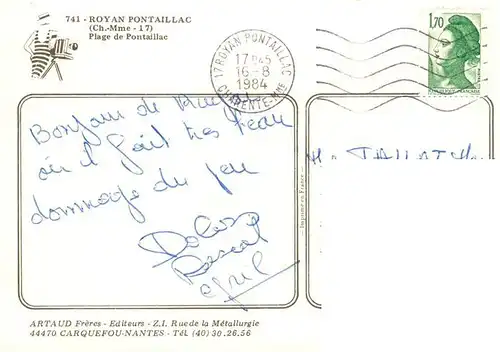 741 - ROYAN PONTAILLAC
(Ch.-Mme - 17)
Plage de Pontaillac
17 ROYAN PONTAILLAC
17 H 45
16-8
1984
CHARENTE-MME
1,70
RÉPUBLIQUE FRANÇAISE
Bonjour de
où il fait très beau
dommage du peu
Pascal
Imprimé en France
ARTAUD Frères - Editeurs - Z.I. Rue de la Métallurgie
44470 CARQUEFOU-NANTES - Tél. (40) 30.26.56